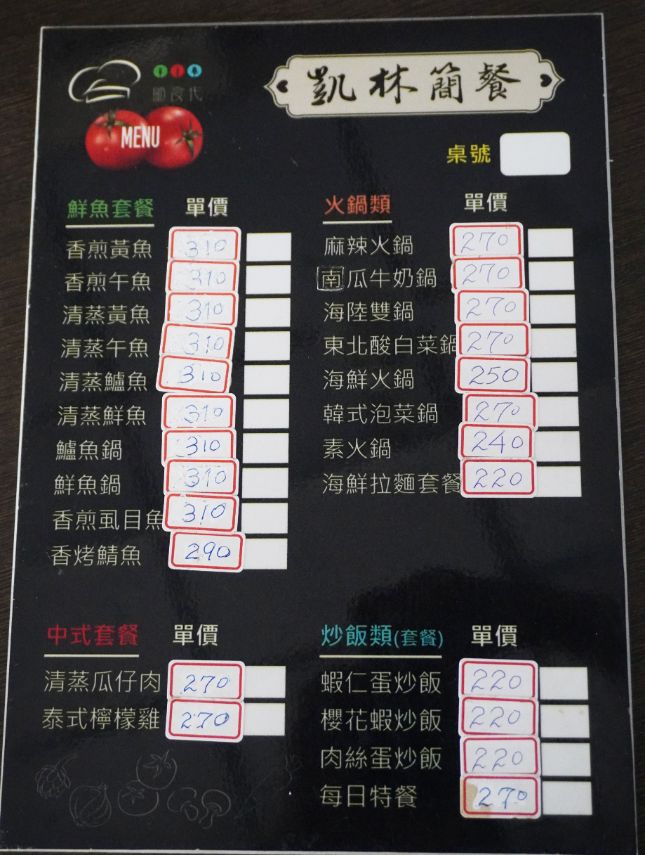 凱林簡餐
MENU
桌號
鮮魚套餐 單價
香煎黃魚 310
香煎午魚 310
清蒸黃魚 310
清蒸午魚 310
清蒸鱸魚 310
清蒸鮮魚 310
鱸魚鍋 310
鮮魚鍋 310
香煎虱目魚 310
香烤鯖魚 290
火鍋類 單價
麻辣火鍋 270
南瓜牛奶鍋 270
海陸雙鍋 270
東北酸白菜鍋 270
海鮮火鍋 250
韓式泡菜鍋 270
素火鍋 240
海鮮拉麵套餐 220
中式套餐 單價
清蒸瓜仔肉 270
泰式檸檬雞 270
炒飯類(套餐) 單價
蝦仁蛋炒飯 220
櫻花蝦炒飯 220
肉絲蛋炒飯 220
每日特餐 270